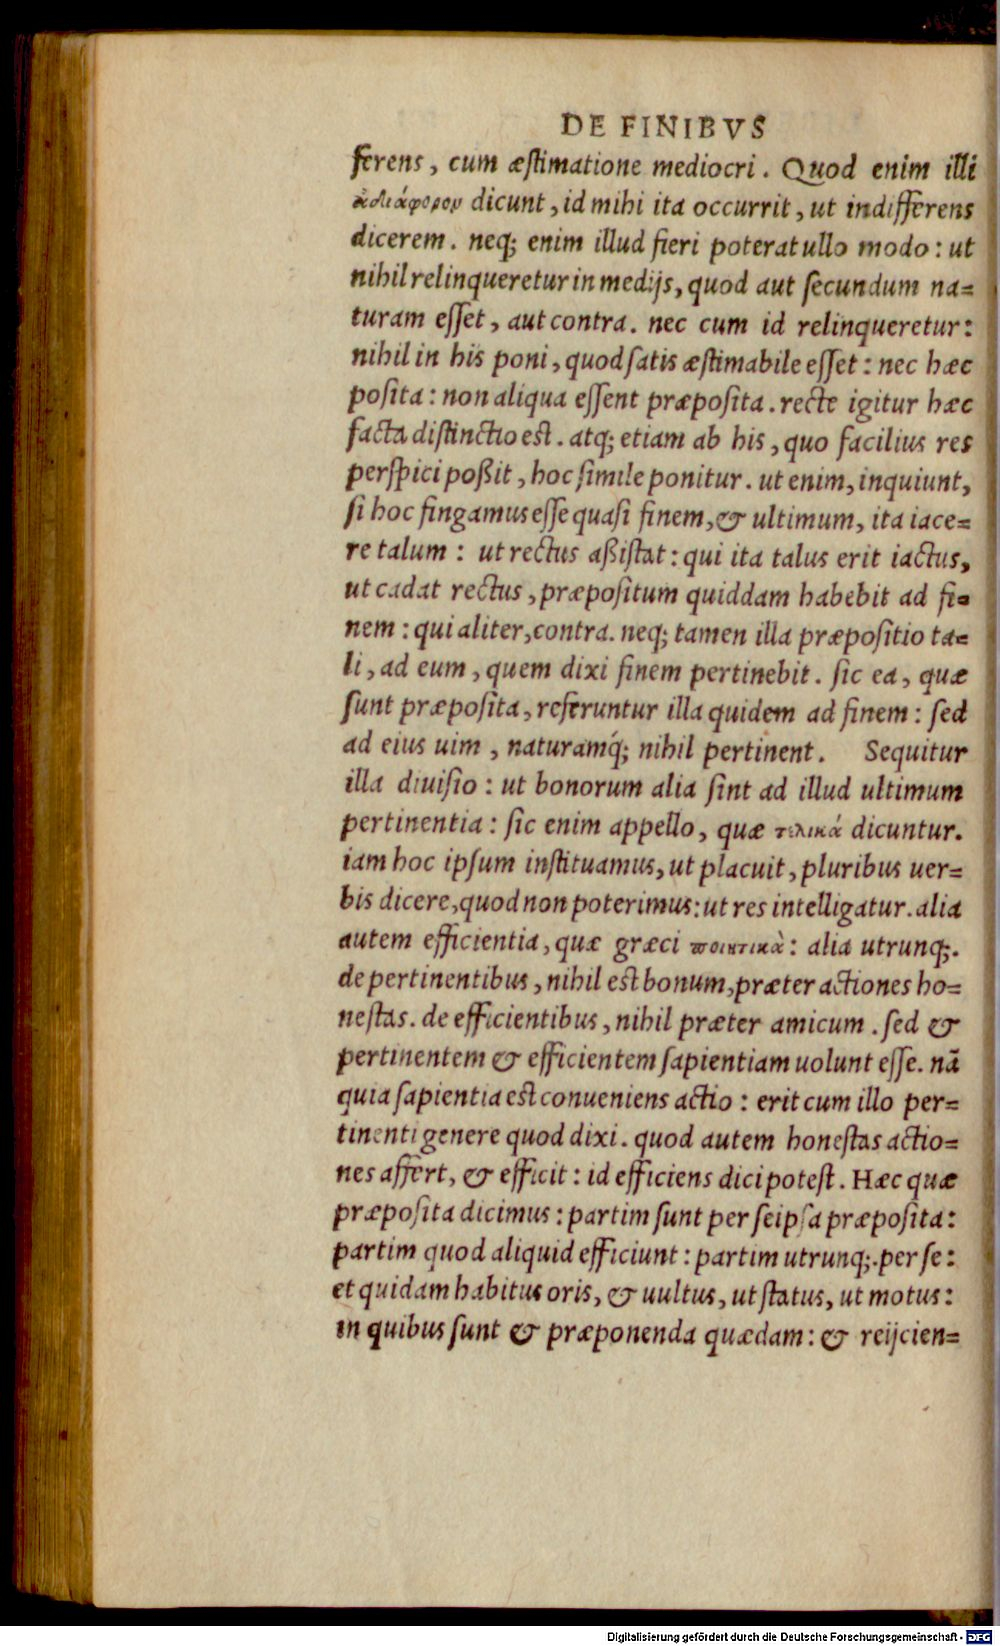 DE FINIBVS
ferens, cum æſtimatione mediocri. Quod enim illi
ἀδιάφορον dicunt, id mihi ita occurrit, ut indifferens
dicerem. neq; enim illud fieri poterat ullo modo: ut
nihil relinqueretur in medijs, quod aut ſecundum na=
turam eſſet, aut contra. nec cum id relinqueretur:
nihil in his poni, quod ſatis æſtimabile eſſet: nec hæc
poſita: non aliqua eſſent præpoſita. recte igitur hæc
facta diſtinctio eſt. atq; etiam ab his, quo facilius res
perſpici poßit, hoc ſimile ponitur. ut enim, inquiunt,
ſi hoc fingamus eſſe quaſi finem, & ultimum, ita iace=
re talum: ut rectus aßiſtat: qui ita talus erit iactus,
ut cadat rectus, præpoſitum quiddam habebit ad fi=
nem: qui aliter, contra. neq; tamen illa præpoſitio ta=
li, ad eum, quem dixi finem pertinebit. ſic ea, quæ
ſunt præpoſita, referuntur illa quidem ad finem: ſed
ad eius uim, naturamq́; nihil pertinent. Sequitur
illa diuiſio: ut bonorum alia ſint ad illud ultimum
pertinentia: ſic enim appello, quæ τελικά dicuntur.
iam hoc ipſum inſtituamus, ut placuit, pluribus uer=
bis dicere, quod non poterimus: ut res intelligatur. alia
autem efficientia, quæ græci ποιητικὰ: alia utrunq;.
de pertinentibus, nihil eſt bonum, præter actiones ho=
neſtas. de efficientibus, nihil præter amicum. ſed &
pertinentem & efficientem ſapientiam uolunt eſſe. nã
quia ſapientia eſt conueniens actio: erit cum illo per=
tinenti genere quod dixi. quod autem honeſtas actio=
nes affert, & efficit: id efficiens dici poteſt. Hæc quæ
præpoſita dicimus: partim ſunt per ſeipſa præpoſita:
partim quod aliquid efficiunt: partim utrunq;. per ſe:
et quidam habitus oris, & uultus, ut ſtatus, ut motus:
in quibus ſunt & præponenda quædam: & reijcien=
Digitalisierung gefördert durch die Deutsche Forschungsgemeinschaft - DFG